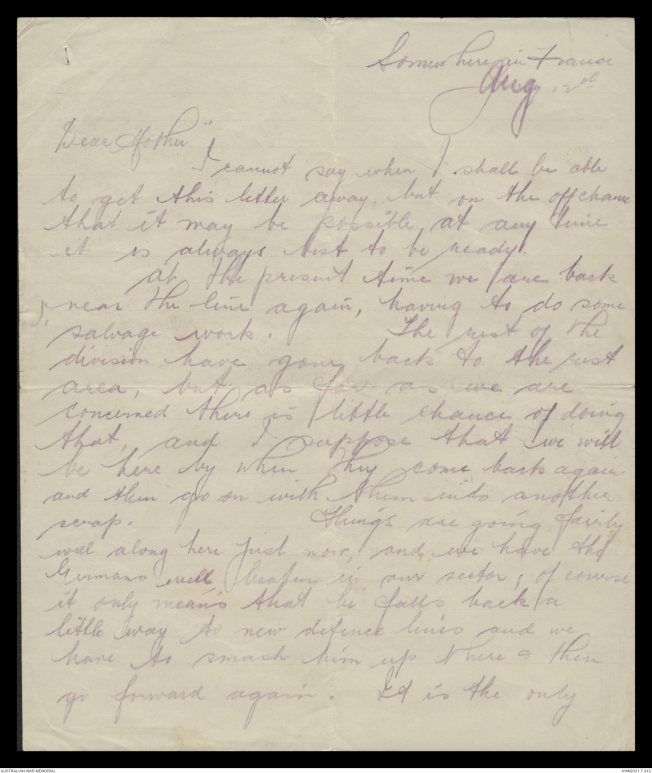 Somewhere in France
Aug
Dear Mother"
I cannot say when I shall be able
to get this letter away, but on the off chance
that it may be possible at any time
it is always best to be ready.
At the present time we are back
near the line again, having to do some
salvage work. The rest of the
division have gone back to the rest
area, but as far as we are
concerned there is little chance of doing
that, and I suppose that we will
be here by when they come back again
and then go on with them into another
scrap. Things are going fairly
well along here just now, and we have the
Germans well beaten in our sector; of course
it only means that he falls back a
little way to new defence lines and we
have to smash him up there & then
go forward again. It is the only
AUSTRALIAN WAR MEMORIAL
AWM2021.7.242